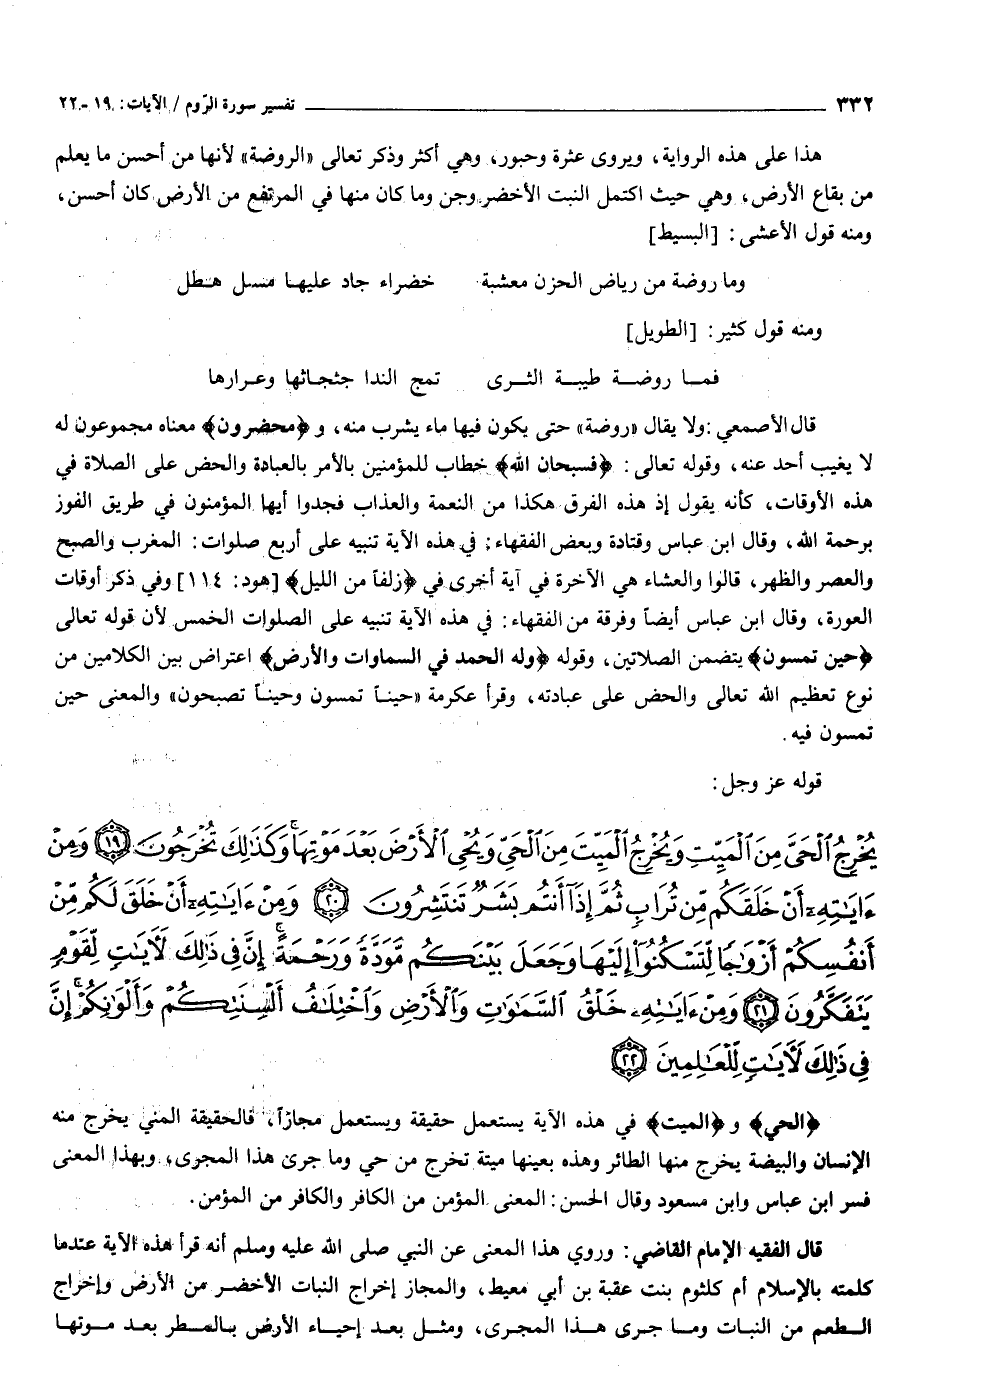 ٣٣٢ تفسير سورة الرّوم / الآيات: ١٩ -٢٢
هذا على هذه الرواية، ويروى عثرة وحبور، وهي أكثر وذكر تعالى «الروضة» لأنها من أحسن ما يعلم
من بقاع الأرض، وهي حيث اكتمل النبت الأخضر وجن وما كان منها في المرتفع من الأرض كان أحسن،
ومنه قول الأعشى: [البسيط]
وما روضة من رياض الحزن معشبة خضراء جاد عليها مسل هطل
ومنه قول كثير: [الطويل]
فمـا روضـة طيبـة الثـرى تمج الندا جثجاثها وعـرارها
قال الأصمعي: ولا يقال «روضة» حتى يكون فيها ماء يشرب منه، و ﴿محضرون﴾ معناه مجموعون له
لا يغيب أحد عنه، وقوله تعالى: ﴿فسبحان الله﴾ خطاب للمؤمنين بالأمر بالعبادة والحض على الصلاة في
هذه الأوقات، كأنه يقول إذ هذه الفرق هكذا من النعمة والعذاب فجدوا أيها المؤمنون في طريق الفوز
برحمة الله، وقال ابن عباس وقتادة وبعض الفقهاء: في هذه الآية تنبيه على أربع صلوات: المغرب والصبح
والعصر والظهر، قالوا والعشاء هي الآخرة في آية أخرى في ﴿زلفاً من الليل﴾ [هود: ١١٤] وفي ذكر أوقات
العورة، وقال ابن عباس أيضاً وفرقة من الفقهاء: في هذه الآية تنبيه على الصلوات الخمس لأن قوله تعالى
﴿حين تمسون﴾ يتضمن الصلاتين، وقوله ﴿وله الحمد في السماوات والأرض﴾ اعتراض بين الكلامين من
نوع تعظيم الله تعالى والحض على عبادته، وقرأ عكرمة «حيناً تمسون وحيناً تصبحون» والمعنى حين
تمسون فيه.
قوله عز وجل:
يُخْرِجُ ٱلْحَىَّ مِنَ ٱلْمَيِّتِ وَيُخْرِجُ ٱلْمَيِّتَ مِنَ ٱلْحَىِّ وَيُحْىِ ٱلْأَرْضَ بَعْدَ مَوْتِهَا ۚ وَكَذَٰلِكَ تُخْرَجُونَ ﴿١٩﴾ وَمِنْ
ءَايَٰتِهِۦٓ أَنْ خَلَقَكُم مِّن تُرَابٍ ثُمَّ إِذَآ أَنتُم بَشَرٌ تَنتَشِرُونَ ﴿٢٠﴾ وَمِنْ ءَايَٰتِهِۦٓ أَنْ خَلَقَ لَكُم مِّنْ
أَنفُسِكُمْ أَزْوَٰجًا لِّتَسْكُنُوٓا۟ إِلَيْهَا وَجَعَلَ بَيْنَكُم مَّوَدَّةً وَرَحْمَةً ۚ إِنَّ فِى ذَٰلِكَ لَءَايَٰتٍ لِّقَوْمٍ
يَتَفَكَّرُونَ ﴿٢١﴾ وَمِنْ ءَايَٰتِهِۦ خَلْقُ ٱلسَّمَٰوَٰتِ وَٱلْأَرْضِ وَٱخْتِلَٰفُ أَلْسِنَتِكُمْ وَأَلْوَٰنِكُمْ ۚ إِنَّ
فِى ذَٰلِكَ لَءَايَٰتٍ لِّلْعَٰلِمِينَ ﴿٢٢﴾
﴿الحي﴾ و ﴿الميت﴾ في هذه الآية يستعمل حقيقة ويستعمل مجازاً، فالحقيقة المني يخرج منه
الإنسان والبيضة يخرج منها الطائر وهذه بعينها ميتة تخرج من حي وما جرى هذا المجرى، وبهذا المعنى
فسر ابن عباس وابن مسعود وقال الحسن: المعنى المؤمن من الكافر والكافر من المؤمن.
قال الفقيه الإمام القاضي: وروي هذا المعنى عن النبي صلى الله عليه وسلم أنه قرأ هذه الآية عندما
كلمته بالإسلام أم كلثوم بنت عقبة بن أبي معيط، والمجاز إخراج النبات الأخضر من الأرض وإخراج
الطعم من النبات وما جرى هذا المجرى، ومثل بعد إحياء الأرض بالمطر بعد موتها